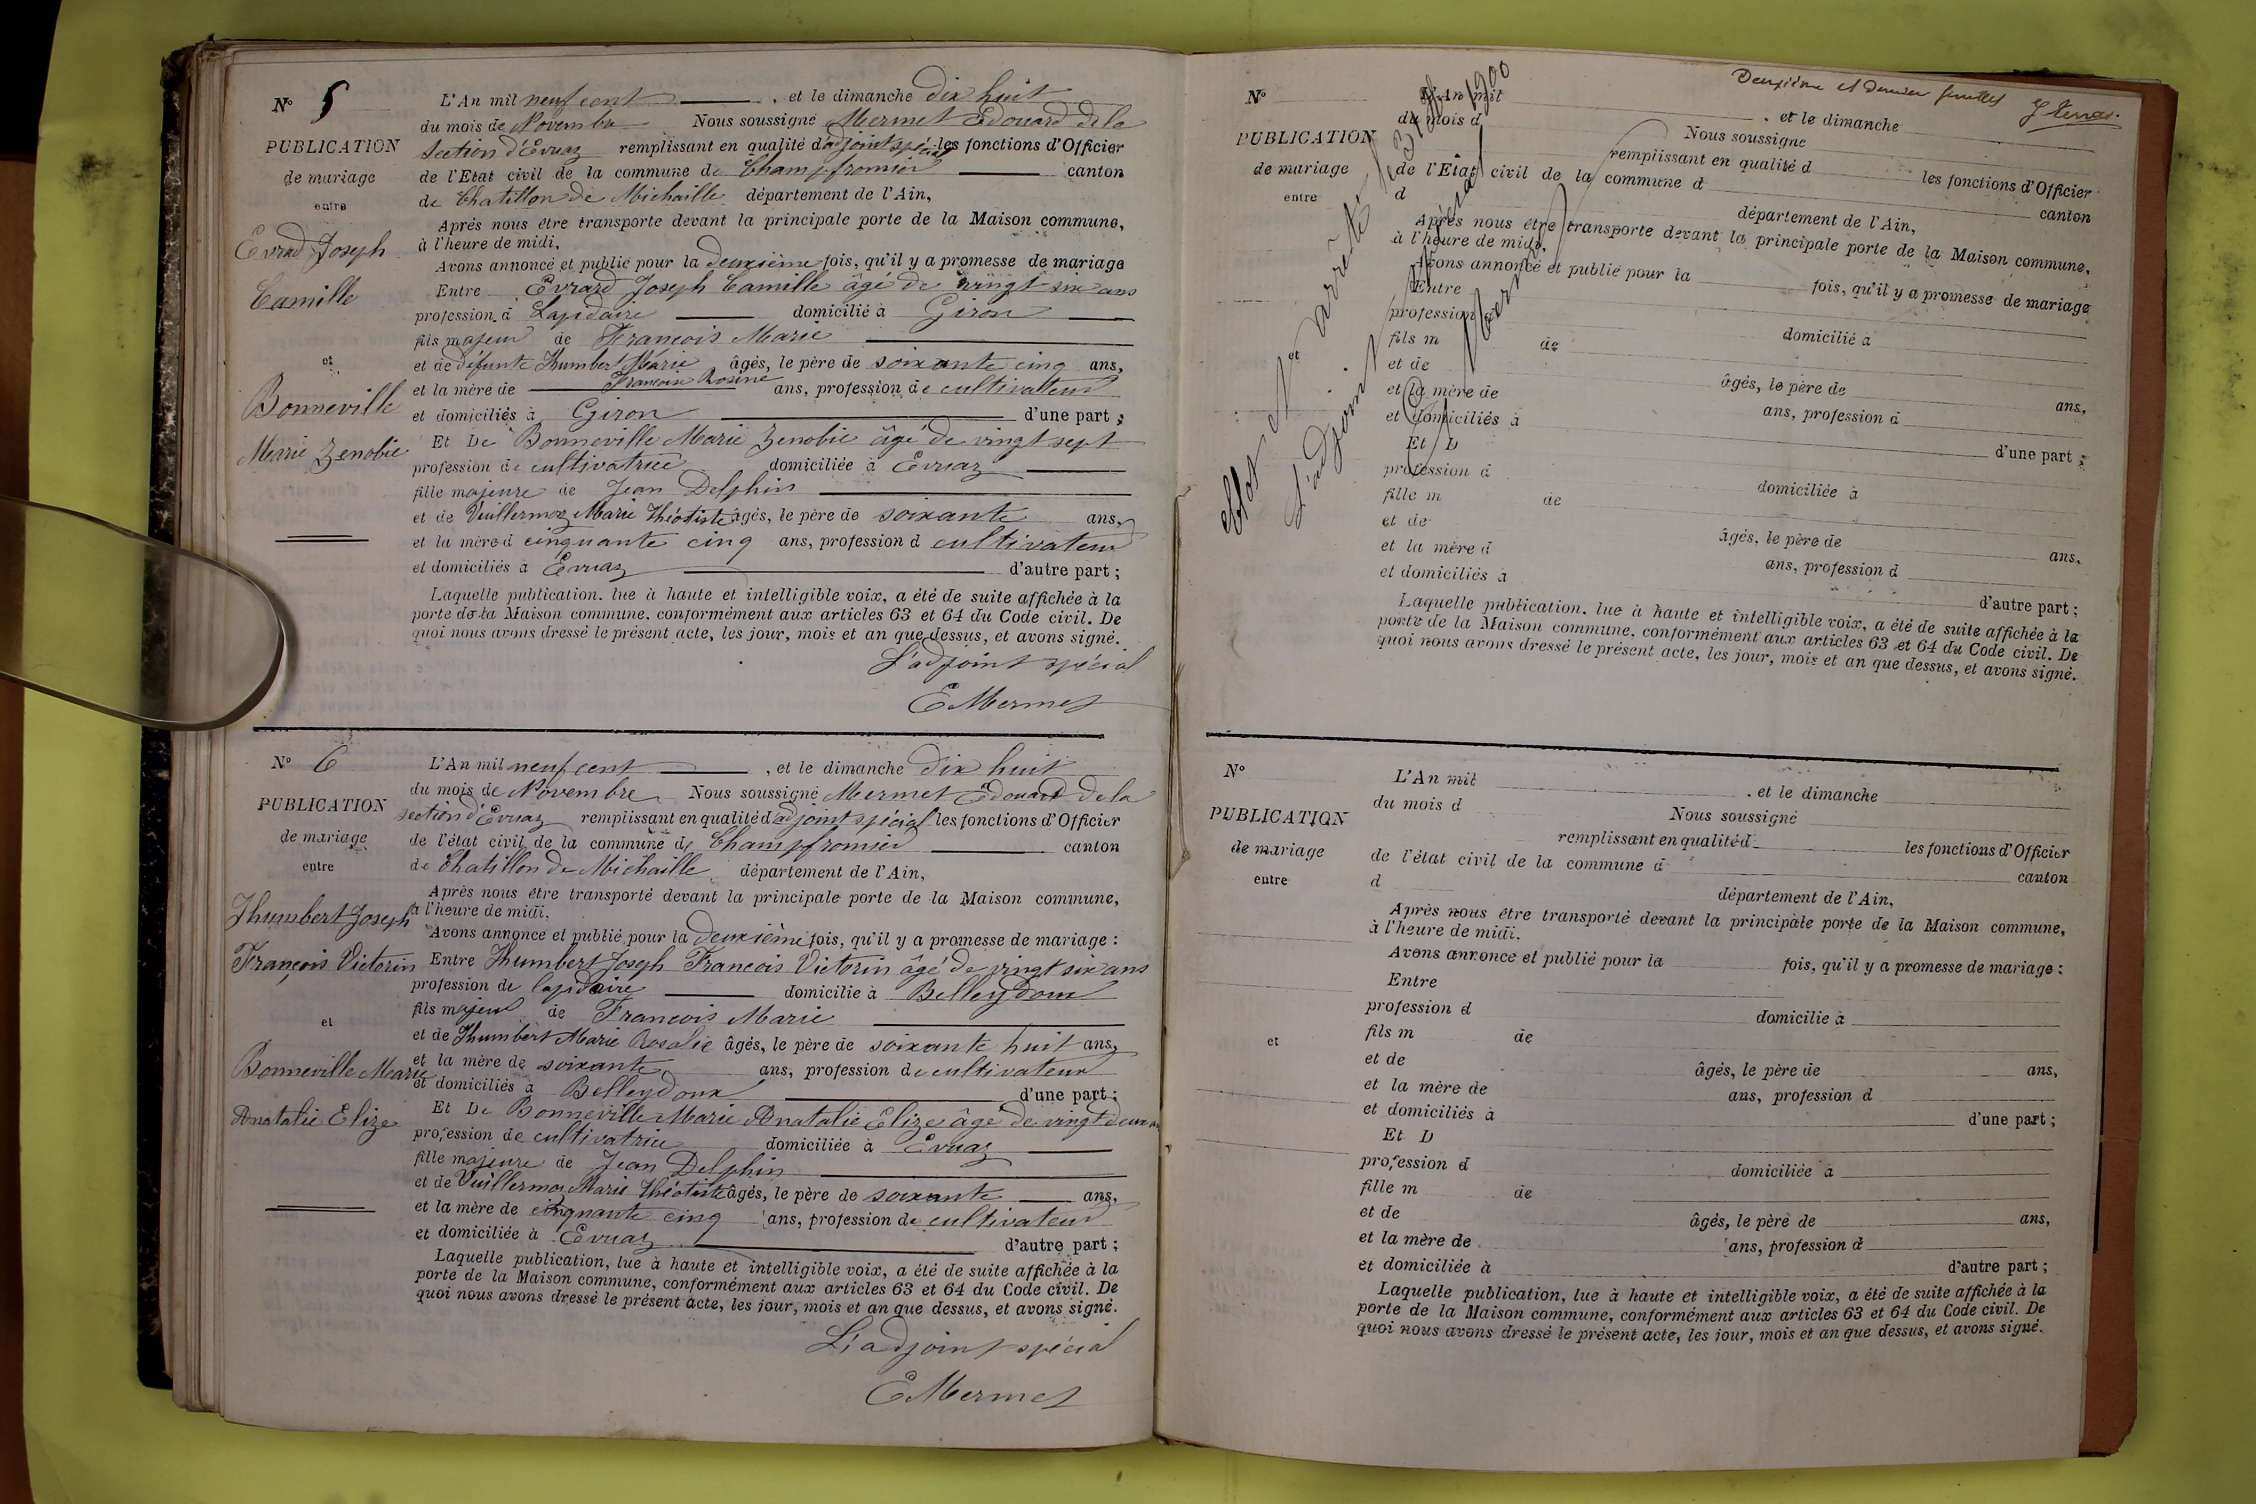 N° 5
PUBLICATION
de mariage
entre
Evrad Joseph
Camille
et
Bonneville
Marie Zenobie
L'An mil neuf cent , et le dimanche dix huit
du mois de Novembre Nous soussigné Mermet Edouard de la
section d'Evuaz remplissant en qualité d'adjoint spécial les fonctions d'Officier
de l'Etat civil de la commune de Champfromier canton
de Chatillon de Michaille département de l'Ain,
Après nous être transporté devant la principale porte de la Maison commune,
à l'heure de midi,
Avons annoncé et publié pour la deuxième fois, qu'il y a promesse de mariage
Entre Evrard Joseph Camille âgé de vingt six ans
profession d Lapidaire domicilié à Giron
fils majeur de François Marie
et de défunte Humbert Marie âgés, le père de soixante cinq ans,
et la mère de Françoise Rosine ans, profession de cultivateur
et domiciliés à Giron d'une part ;
Et De Bonneville Marie Zenobie âgé de vingt sept
profession de cultivatrice domiciliée à Evuaz
fille majeure de Jean Delphin
et de Vuillermoz Marie Théotiste âgés, le père de soixante ans,
et la mère d cinquante cinq ans, profession d cultivateur
et domiciliés à Evuaz d'autre part ;
Laquelle publication, lue à haute et intelligible voix, a été de suite affichée à la
porte de la Maison commune, conformément aux articles 63 et 64 du Code civil. De
quoi nous avons dressé le présent acte, les jour, mois et an que dessus, et avons signé.
L'adjoint spécial
E Mermet
N° 6
PUBLICATION
de mariage
entre
Humbert Joseph
François Victorin
et
Bonneville Marie
Anatalie Elize
L'An mil neuf cent , et le dimanche dix huit
du mois de Novembre Nous soussigné Mermet Edouard de la
section d'Evuaz remplissant en qualité d'adjoint spécial les fonctions d'Officier
de l'état civil de la commune de Champfromier canton
de Chatillon de Michaille département de l'Ain,
Après nous être transporté devant la principale porte de la Maison commune,
à l'heure de midi.
Avons annonce et publié pour la deuxième fois, qu'il y a promesse de mariage :
Entre Humbert Joseph François Victorin âgé de vingt six ans
profession de lapidaire domicilie à Belleydoux
fils majeur de François Marie
et de Humbert Marie Rosalie âgés, le père de soixante huit ans,
et la mère de soixante ans, profession de cultivateur
et domiciliés à Belleydoux d'une part ;
Et De Bonneville Marie Anatalie Elize âgé de vingt deux
profession de cultivatrice domiciliée à Evuaz
fille majeure de Jean Delphin
et de Vuillermoz Marie Théotiste âgés, le père de soixante ans,
et la mère de cinquante cinq ans, profession de cultivateur
et domiciliée à Evuaz d'autre part ;
Laquelle publication, lue à haute et intelligible voix, a été de suite affichée à la
porte de la Maison commune, conformément aux articles 63 et 64 du Code civil. De
quoi nous avons dressé le présent acte, les jour, mois et an que dessus, et avons signé.
L'adjoint spécial
E Mermet
Deuxième et dernier feuillet
Clos et arrêté le 31 1900
L'adjoint spécial
E Mermet
N°
PUBLICATION
de mariage
entre
et
L'An mil . et le dimanche
du mois d Nous soussigné
remplissant en qualité d les fonctions d'Officier
de l'Etat civil de la commune d canton
d département de l'Ain,
Après nous être transporté devant la principale porte de la Maison commune,
à l'heure de midi,
Avons annoncé et publié pour la fois, qu'il y a promesse de mariage
Entre
profession d domicilié à
fils m de
et de âgés, le père de ans,
et la mère de ans, profession d
et domiciliés à d'une part ;
Et D
profession d domiciliée à
fille m de
et de âgés, le père de ans,
et la mère d ans, profession d
et domiciliés à d'autre part ;
Laquelle publication, lue à haute et intelligible voix, a été de suite affichée à la
porte de la Maison commune, conformément aux articles 63 et 64 du Code civil. De
quoi nous avons dressé le présent acte, les jour, mois et an que dessus, et avons signé.
N°
PUBLICATION
de mariage
entre
et
L'An mil . et le dimanche
du mois d Nous soussigné
remplissant en qualité d les fonctions d'Officier
de l'état civil de la commune d canton
d département de l'Ain,
Après nous être transporté devant la principale porte de la Maison commune,
à l'heure de midi.
Avons annoncé et publié pour la fois, qu'il y a promesse de mariage :
Entre
profession d domicilie à
fils m de
et de âgés, le père de ans,
et la mère de ans, profession d
et domiciliés à d'une part ;
Et D
profession d domiciliée à
fille m de
et de âgés, le père de ans,
et la mère de ans, profession d
et domiciliée à d'autre part ;
Laquelle publication, lue à haute et intelligible voix, a été de suite affichée à la
porte de la Maison commune, conformément aux articles 63 et 64 du Code civil. De
quoi nous avons dressé le présent acte, les jour, mois et an que dessus, et avons signé.